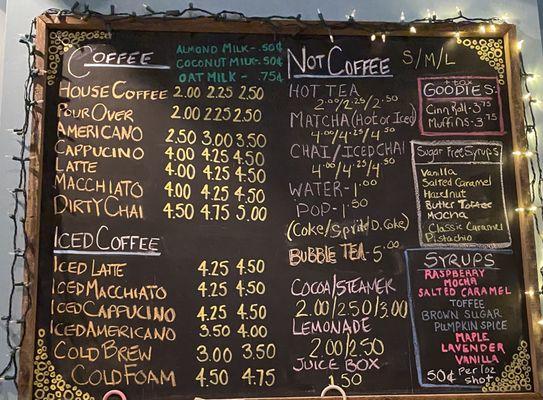 COFFEE
ALMOND MILK-.50¢
COCONUT MILK-.50¢
OAT MILK - .75¢
HOUSE COFFEE 2.00 2.25 2.50
POUR OVER 2.00 2.25 2.50
AMERICANO 2.50 3.00 3.50
CAPPUCINO 4.00 4.25 4.50
LATTE 4.00 4.25 4.50
MACCHIATO 4.00 4.25 4.50
DIRTY CHAI 4.50 4.75 5.00
ICED COFFEE
ICED LATTE 4.25 4.50
ICED MACCHIATO 4.25 4.50
ICED CAPPUCINO 4.25 4.50
ICED AMERICANO 3.50 4.00
COLD BREW 3.00 3.50
COLD FOAM 4.50 4.75
NOT COFFEE S/M/L
HOT TEA
2.00/2.25/2.50
MATCHA (HOT or ICED)
4.00/4.25/4.50
CHAI/ICED CHAI
4.00/4.25/4.50
WATER-1.00
POP-1.50
(Coke/Sprite/D.Coke)
BUBBLE TEA-5.00
COCOA/STEAMER
2.00/2.50/3.00
LEMONADE
2.00/2.50
JUICE BOX
1.50
+tax
GOODIES:
Cinn Roll-3.75
Muffins-3.75
Sugar Free Syrups
Vanilla
Salted Caramel
Hazelnut
Butter Toffee
Mocha
Classic Caramel
Pistachio
SYRUPS
RASPBERRY
MOCHA
SALTED CARAMEL
TOFFEE
BROWN SUGAR
PUMPKIN SPICE
MAPLE
LAVENDER
VANILLA
50¢ per 1oz shot